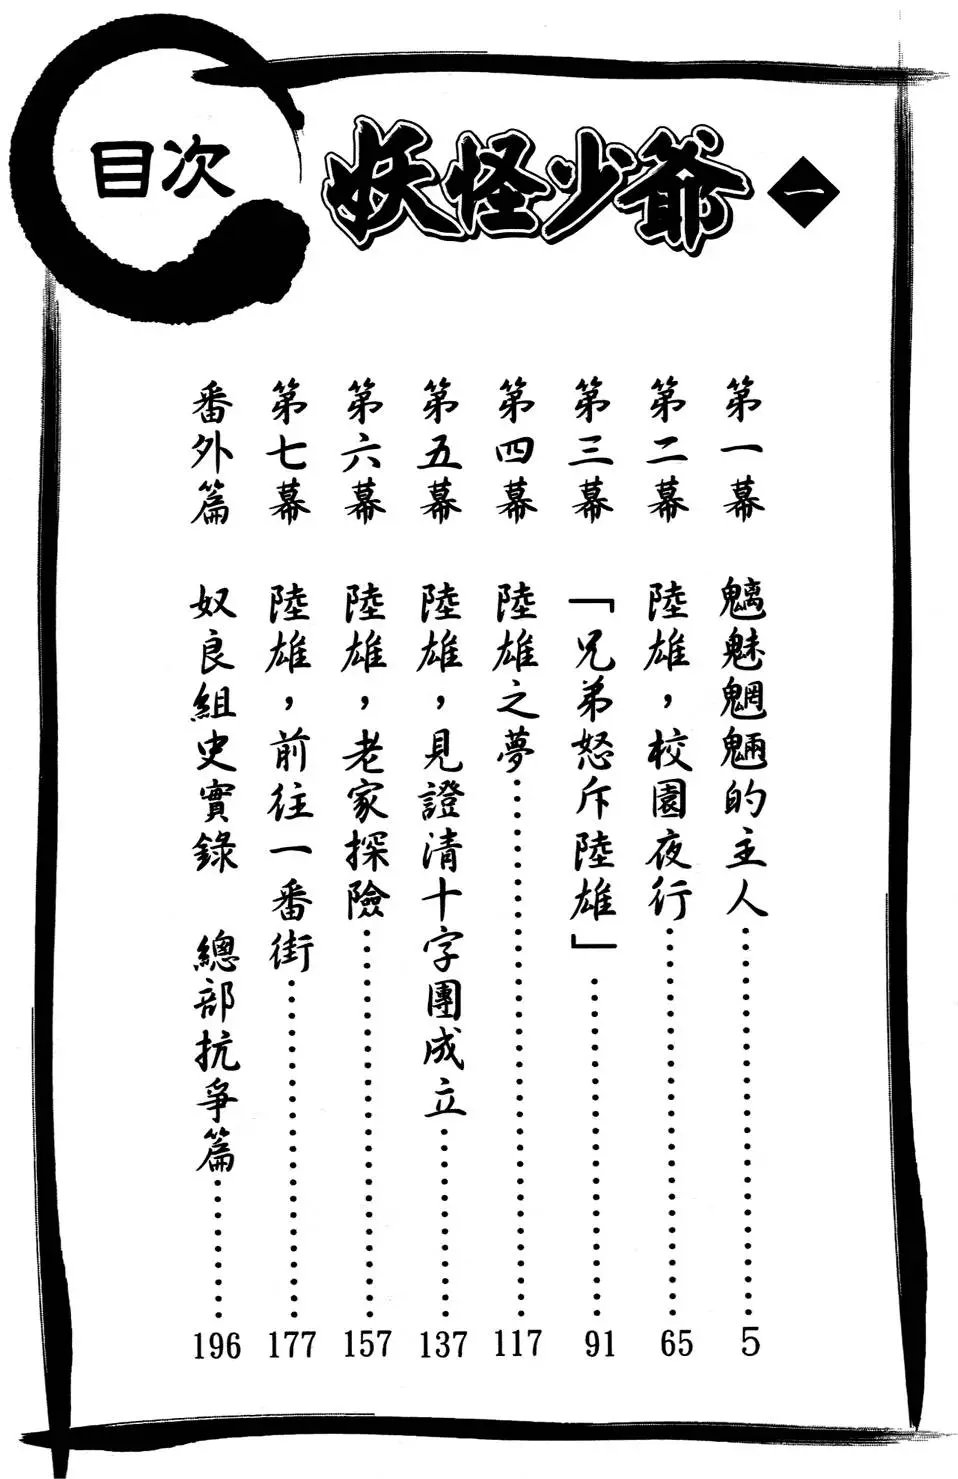 目次
妖怪少爺 一
第一幕 魑魅魍魎的主人……5
第二幕 陸雄，校園夜行……65
第三幕 「兄弟怒斥陸雄」……91
第四幕 陸雄之夢……117
第五幕 陸雄，見證清十字團成立……137
第六幕 陸雄，老家探險……157
第七幕 陸雄，前往一番街……177
番外篇 奴良組史實錄 總部抗爭篇……196